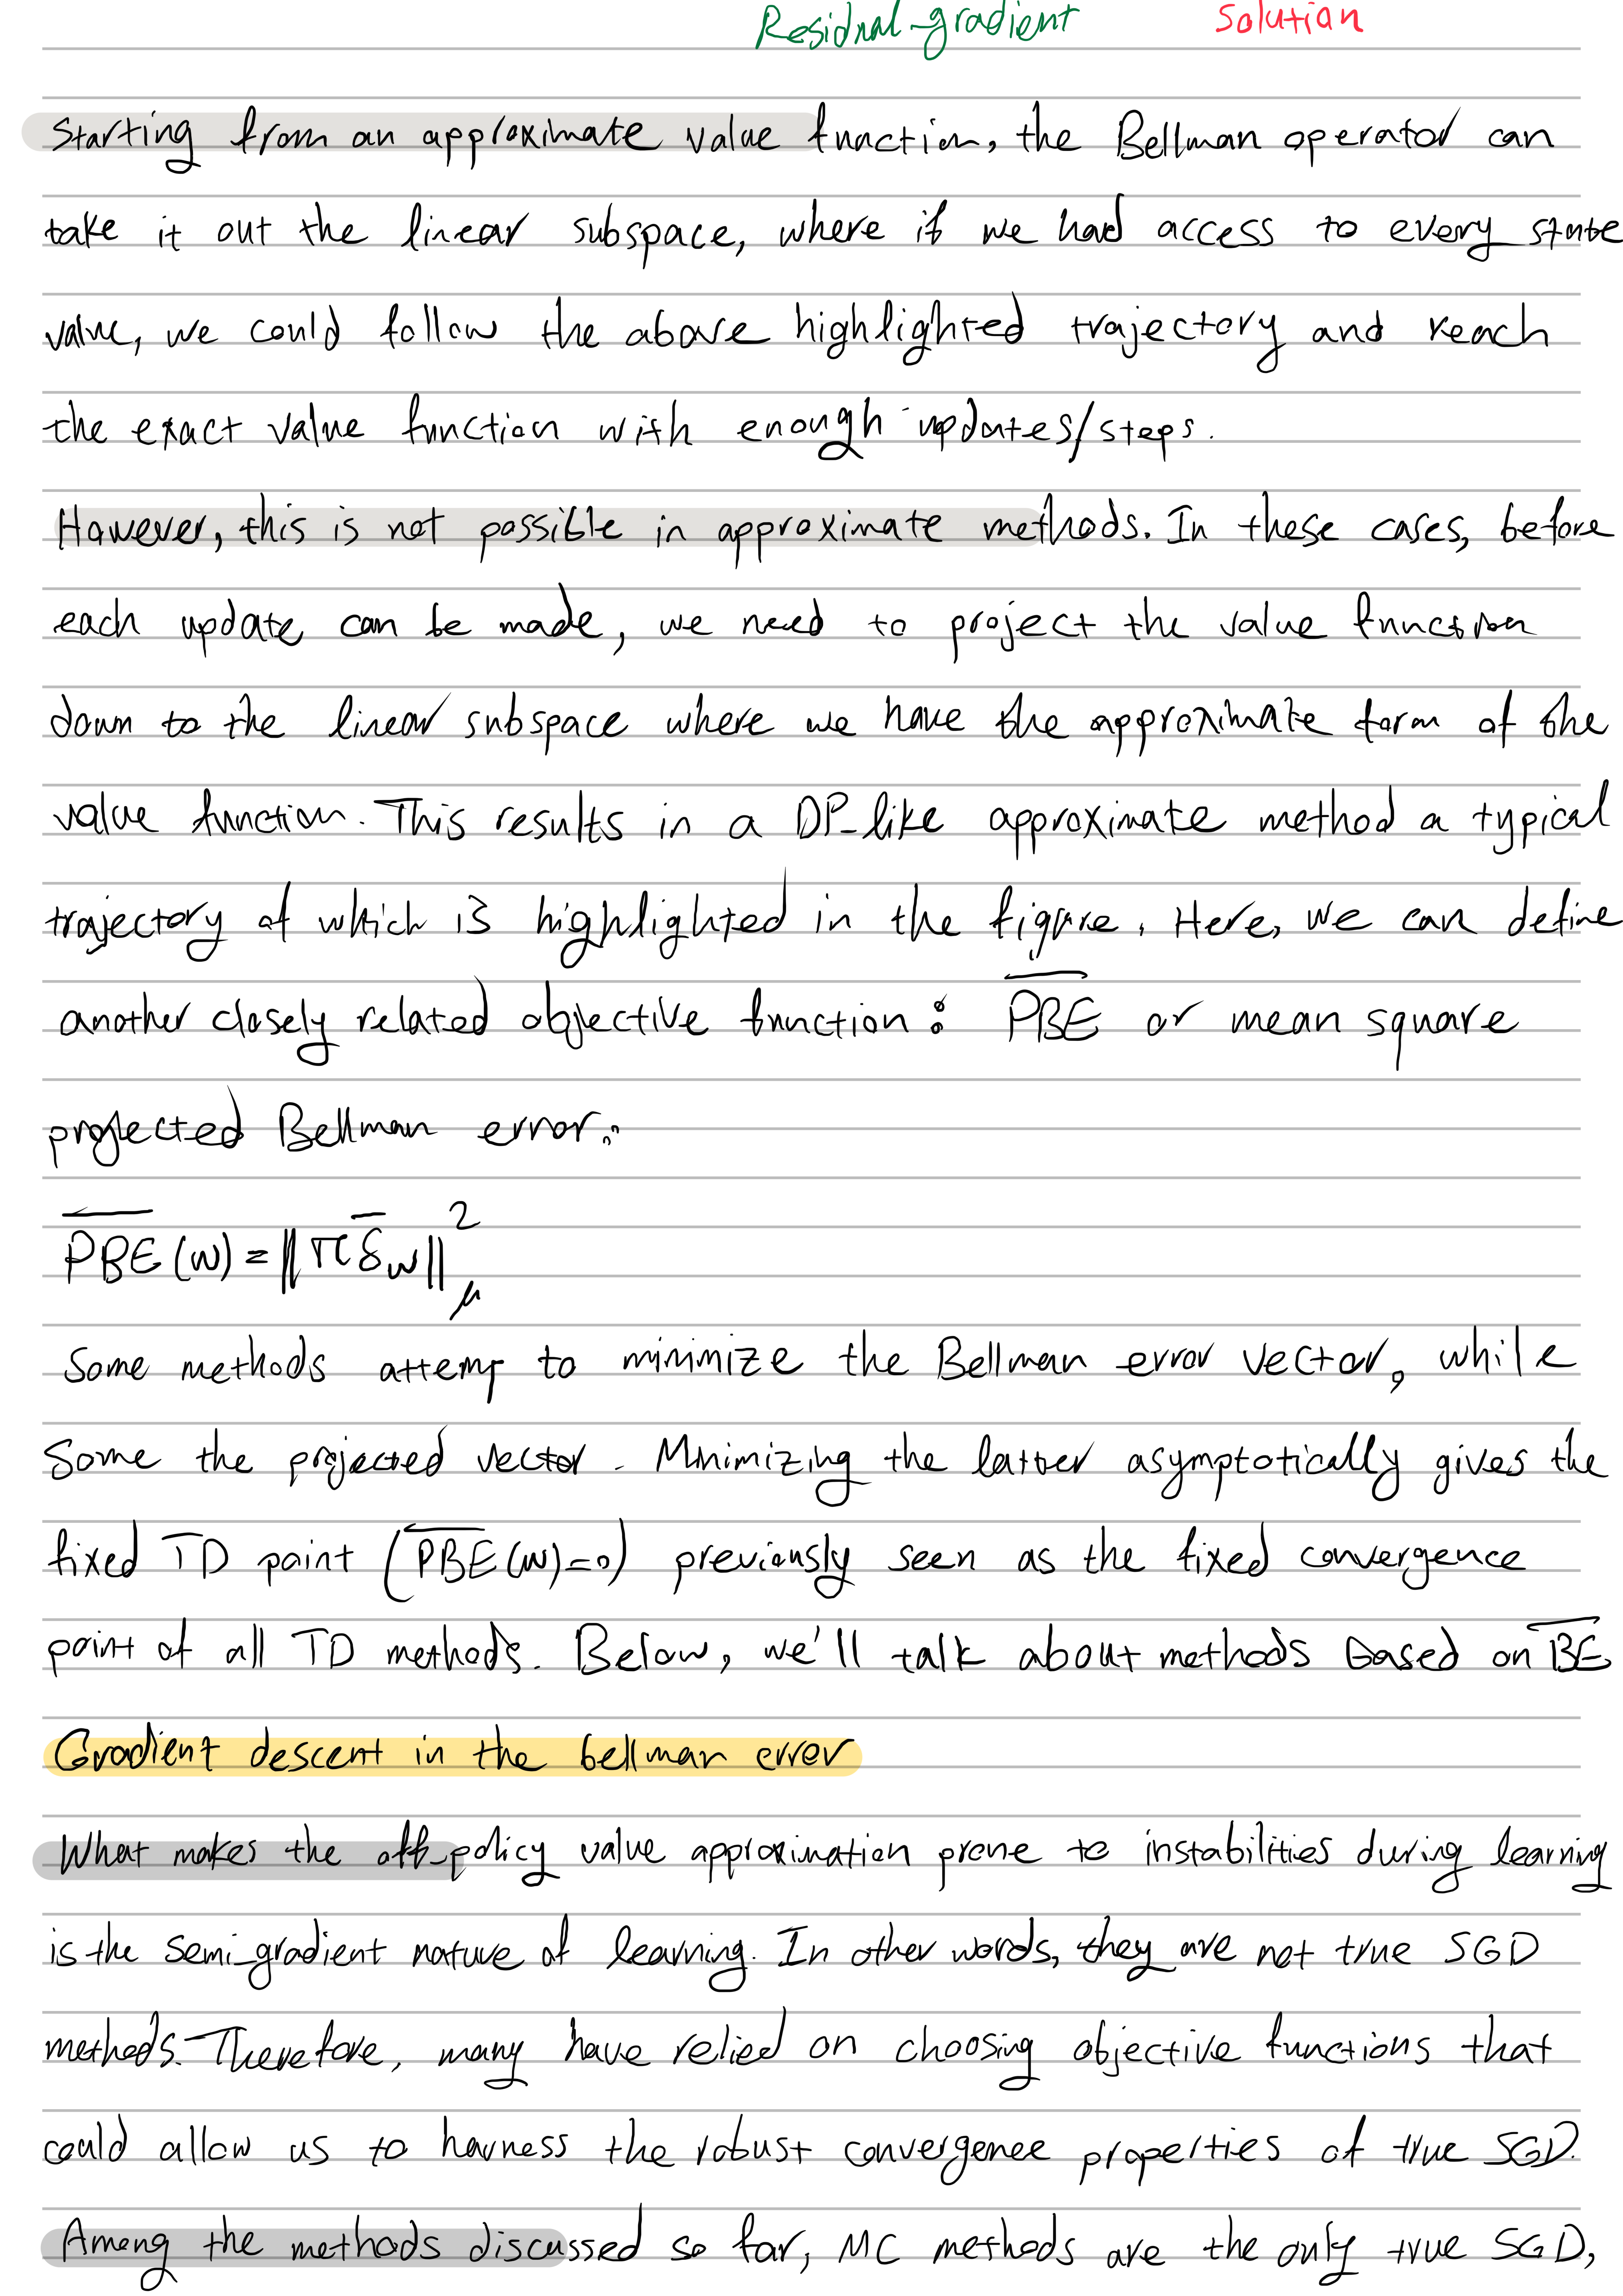 Residual-gradient Solution
Starting from an approximate value function, the Bellman operator can
take it out the linear subspace, where if we had access to every state
value, we could follow the above highlighted trajectory and reach
the exact value function with enough updates/steps.
However, this is not possible in approximate methods. In these cases, before
each update can be made, we need to project the value function
down to the linear subspace where we have the approximate form of the
value function. This results in a DP-like approximate method a typical
trajectory of which is highlighted in the figure. Here, we can define
another closely related objective function: P̅B̅E̅ or mean square
projected Bellman error:
P̅B̅E̅(w) = ||π δ̅w||²μ
Some methods attemp to minimize the Bellman error vector, while
Some the projected vector. Minimizing the latter asymptotically gives the
fixed TD point (P̅B̅E̅(w)=0) previously seen as the fixed convergence
point of all TD methods. Below, we'll talk about methods based on B̅E̅
Gradient descent in the bellman error
What makes the off-policy value approximation prone to instabilities during learning
is the semi-gradient nature of learning. In other words, they are not true SGD
methods. Therefore, many have relied on choosing objective functions that
could allow us to harness the robust convergence properties of true SGD.
Among the methods discussed so far, MC methods are the only true SGD,